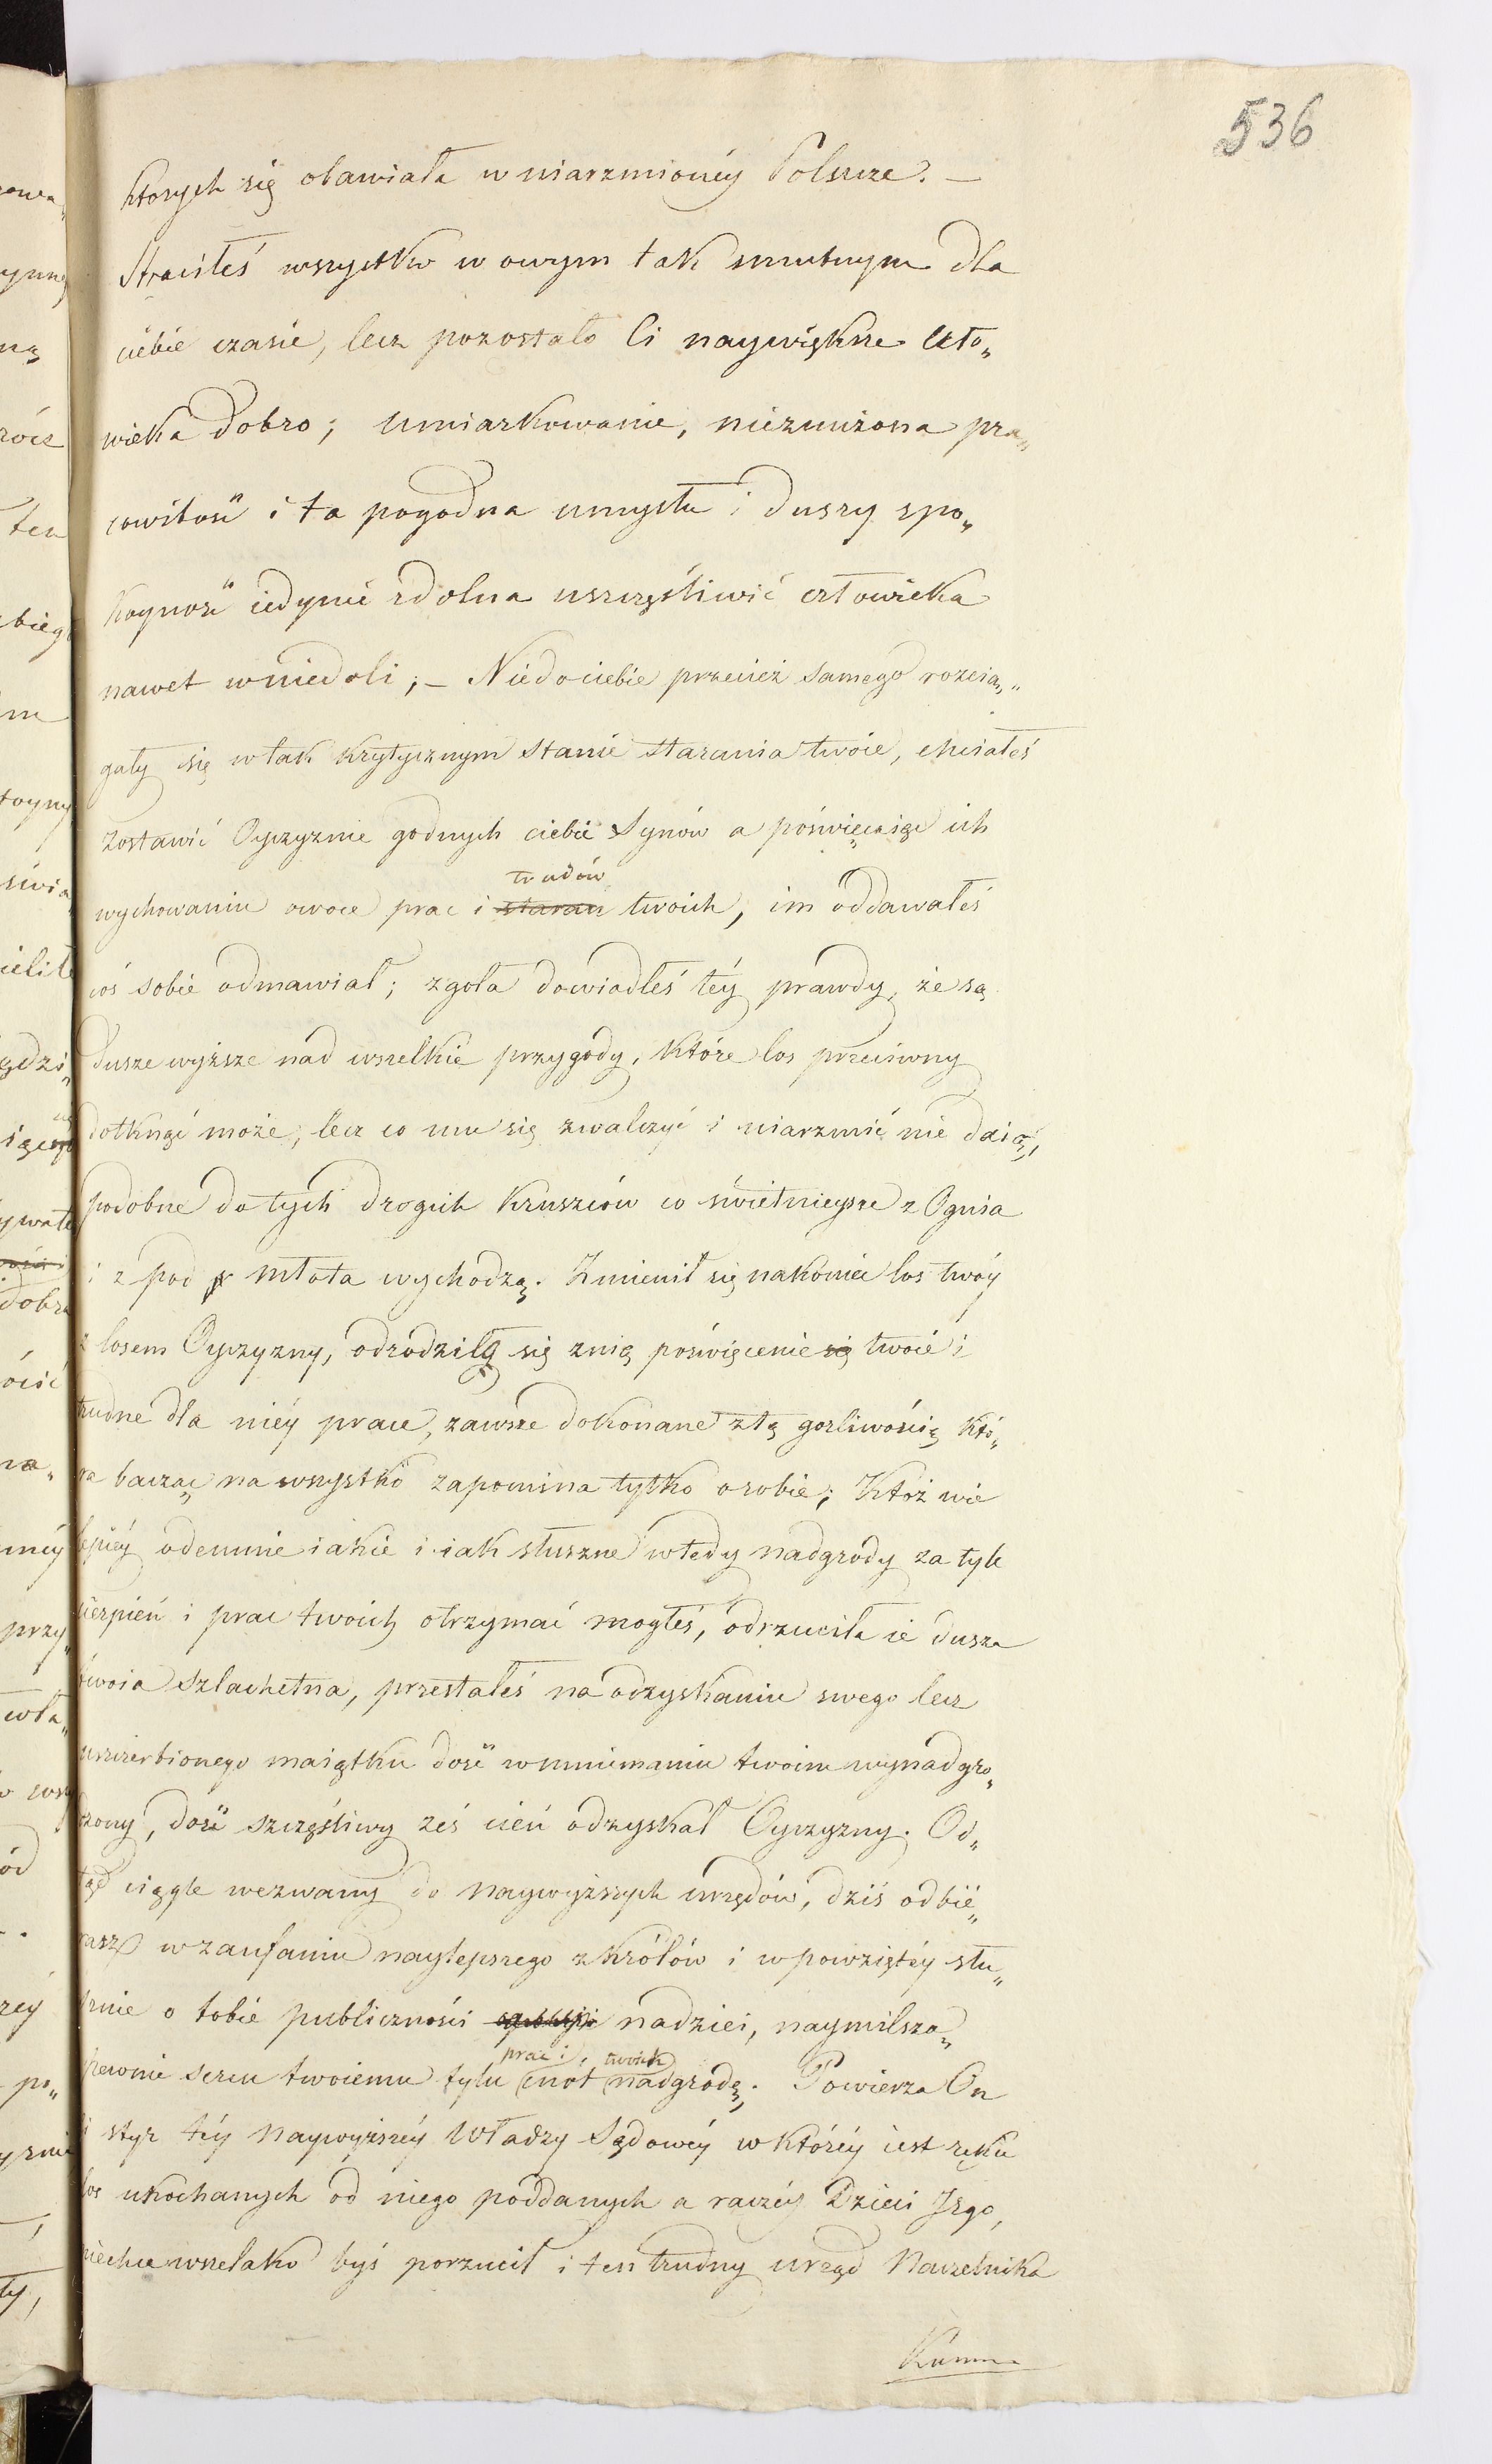 536
ktorych się obawiała w uiarzmionéy Polszcze. —
Straciłeś wszystko w owym tak smutnym dla
ciebie czasie, lecz pozostało Ci naywiększe czło„
wieka dobro; umiarkowanie, niezmiżona pra„
cowitość i ta pogodna umysłu i duszy spo„
koyność iedynie zdolna uszczęśliwić człowieka
nawet w niedoli; – Nie do ciebie przecież samego rozcią„
gały się w tak krytycznym stanie starania twoie, chciałeś
zostawić Oyczyznie godnych ciebie Synów a poświęcaiąc ich
wychowaniu owoce prac i staran trudów twoich, im oddawałeś
coś sobie odmawiał; zgoła dowiadłeś téy prawdy, że są
dusze wyższe nad wszelkie przygody, które los przeciwny
dotknąć może, lecz co mu się zwalczyć i uiarzmić nie daią,
podobne do tych drogich kruszców co świetnieysze z Ognia
i z pod młota wychodzą. Zmienił się nakoniec los twóy
z losem Oyczyzny, odrodziłą się z nią poświęcenie się twoie i
trudne dla niéy prace, zawsze dokonane z tą gorliwością któ„
ra bacząc na wszystko zapomina tylko o sobie; Któż wie
lepiéy odemnie iakie i iak słuszne wtedy nadgrody za tyle
cierpień i prac twoich otrzymać mogłeś, odrzuciła ie dusza
twoia szlachetna, przestałeś na odzyskaniu swego lecz
uszczerbionego maiątku dość w mniemaniu twoim wynadgro„
dzony, dość szczęśliwy żeś cień odzyskał Oyczyzny. Od„
tąd ciągle wezwany do naywyższych urzędów, dziś odbie„
rasz w zaufaniu naylepszego z Królów i w powziętéy słu„
sznie o tobie publiczności nadziei, naymilszą
pewnie sercu twoiemu tylu prac i cnot twoich nadgrodę. Powierza On
i styr téy naywyższéy Władzy Sądowéy w któréy iest ręku
los ukochanych od niego poddanych a raczéy Dzieci Jego,
niechce wszelako byś porzucił i ten trudny urząd Naczelnika
Kumu